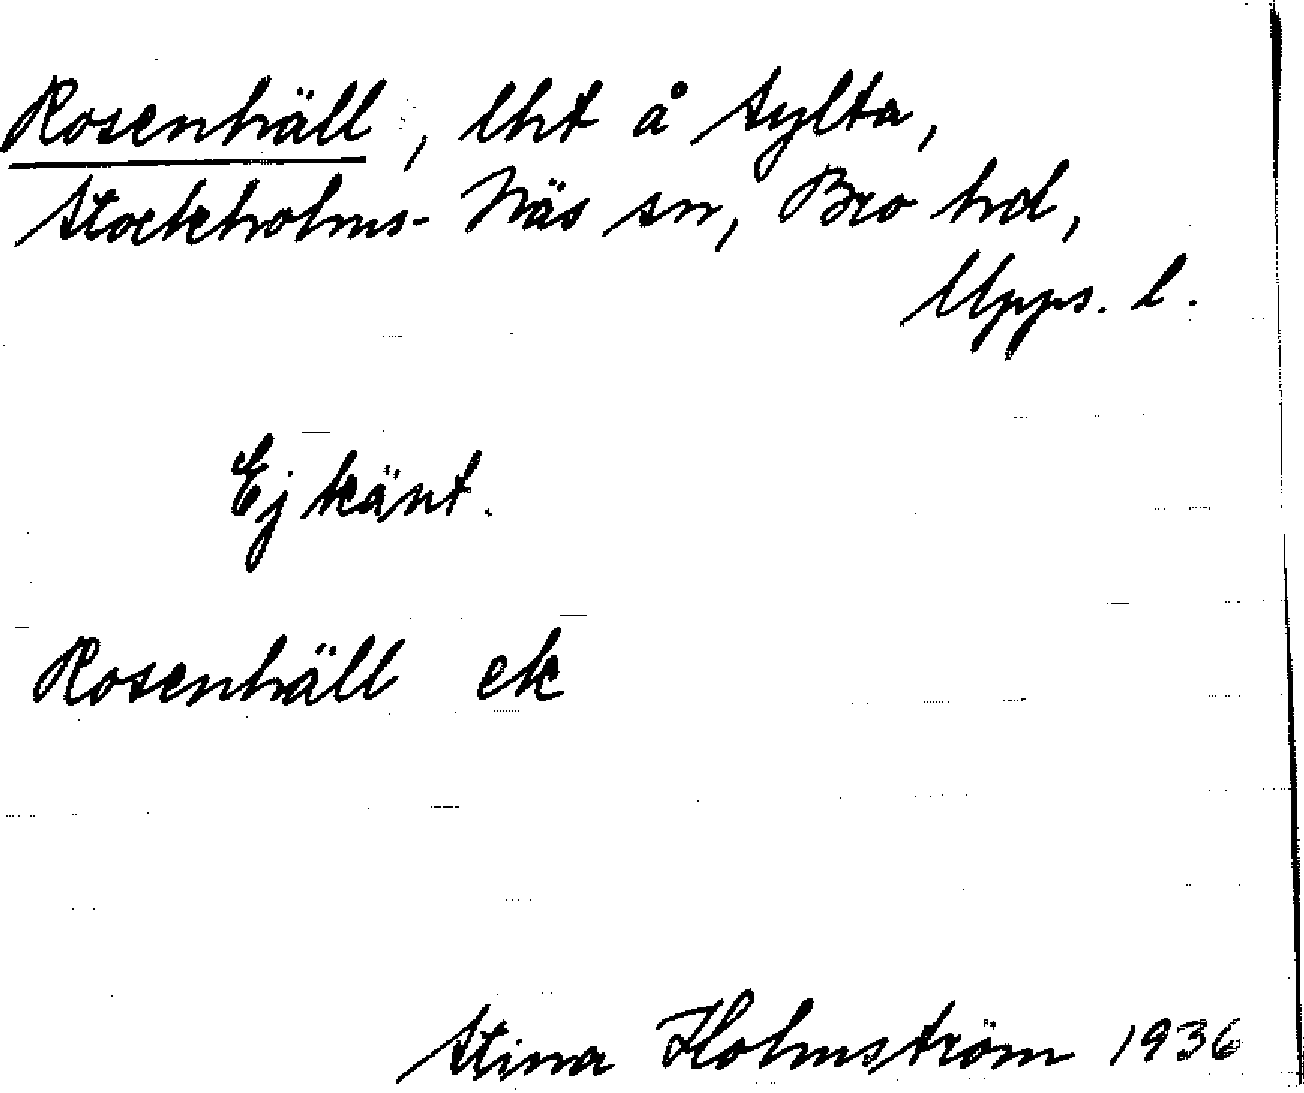 Rosenhäll, lht å Sylta,
Stockholms-Näs sn, Bro hd,
Upps. l.
Ej känt.
Rosenhäll ek
Stina Holmström 1936